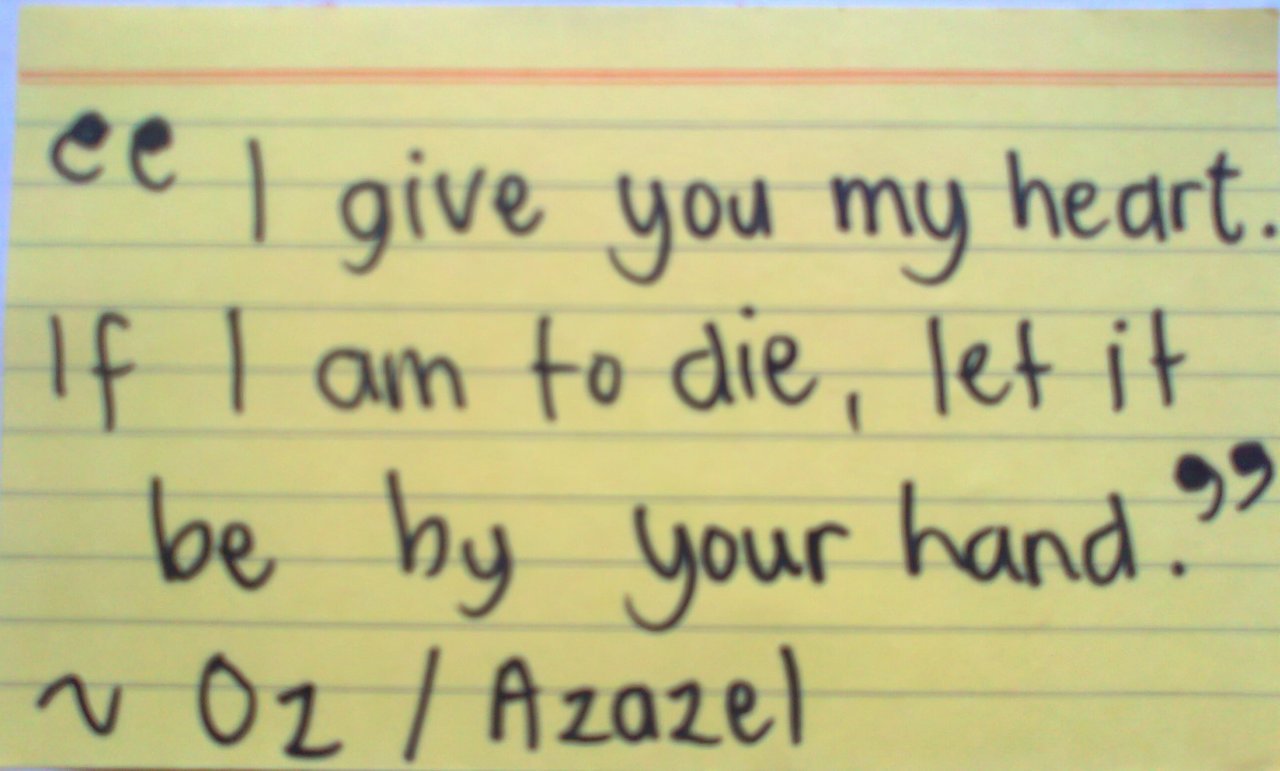 “ I give you my heart.
If I am to die, let it
be by your hand.”
~ Oz / Azazel